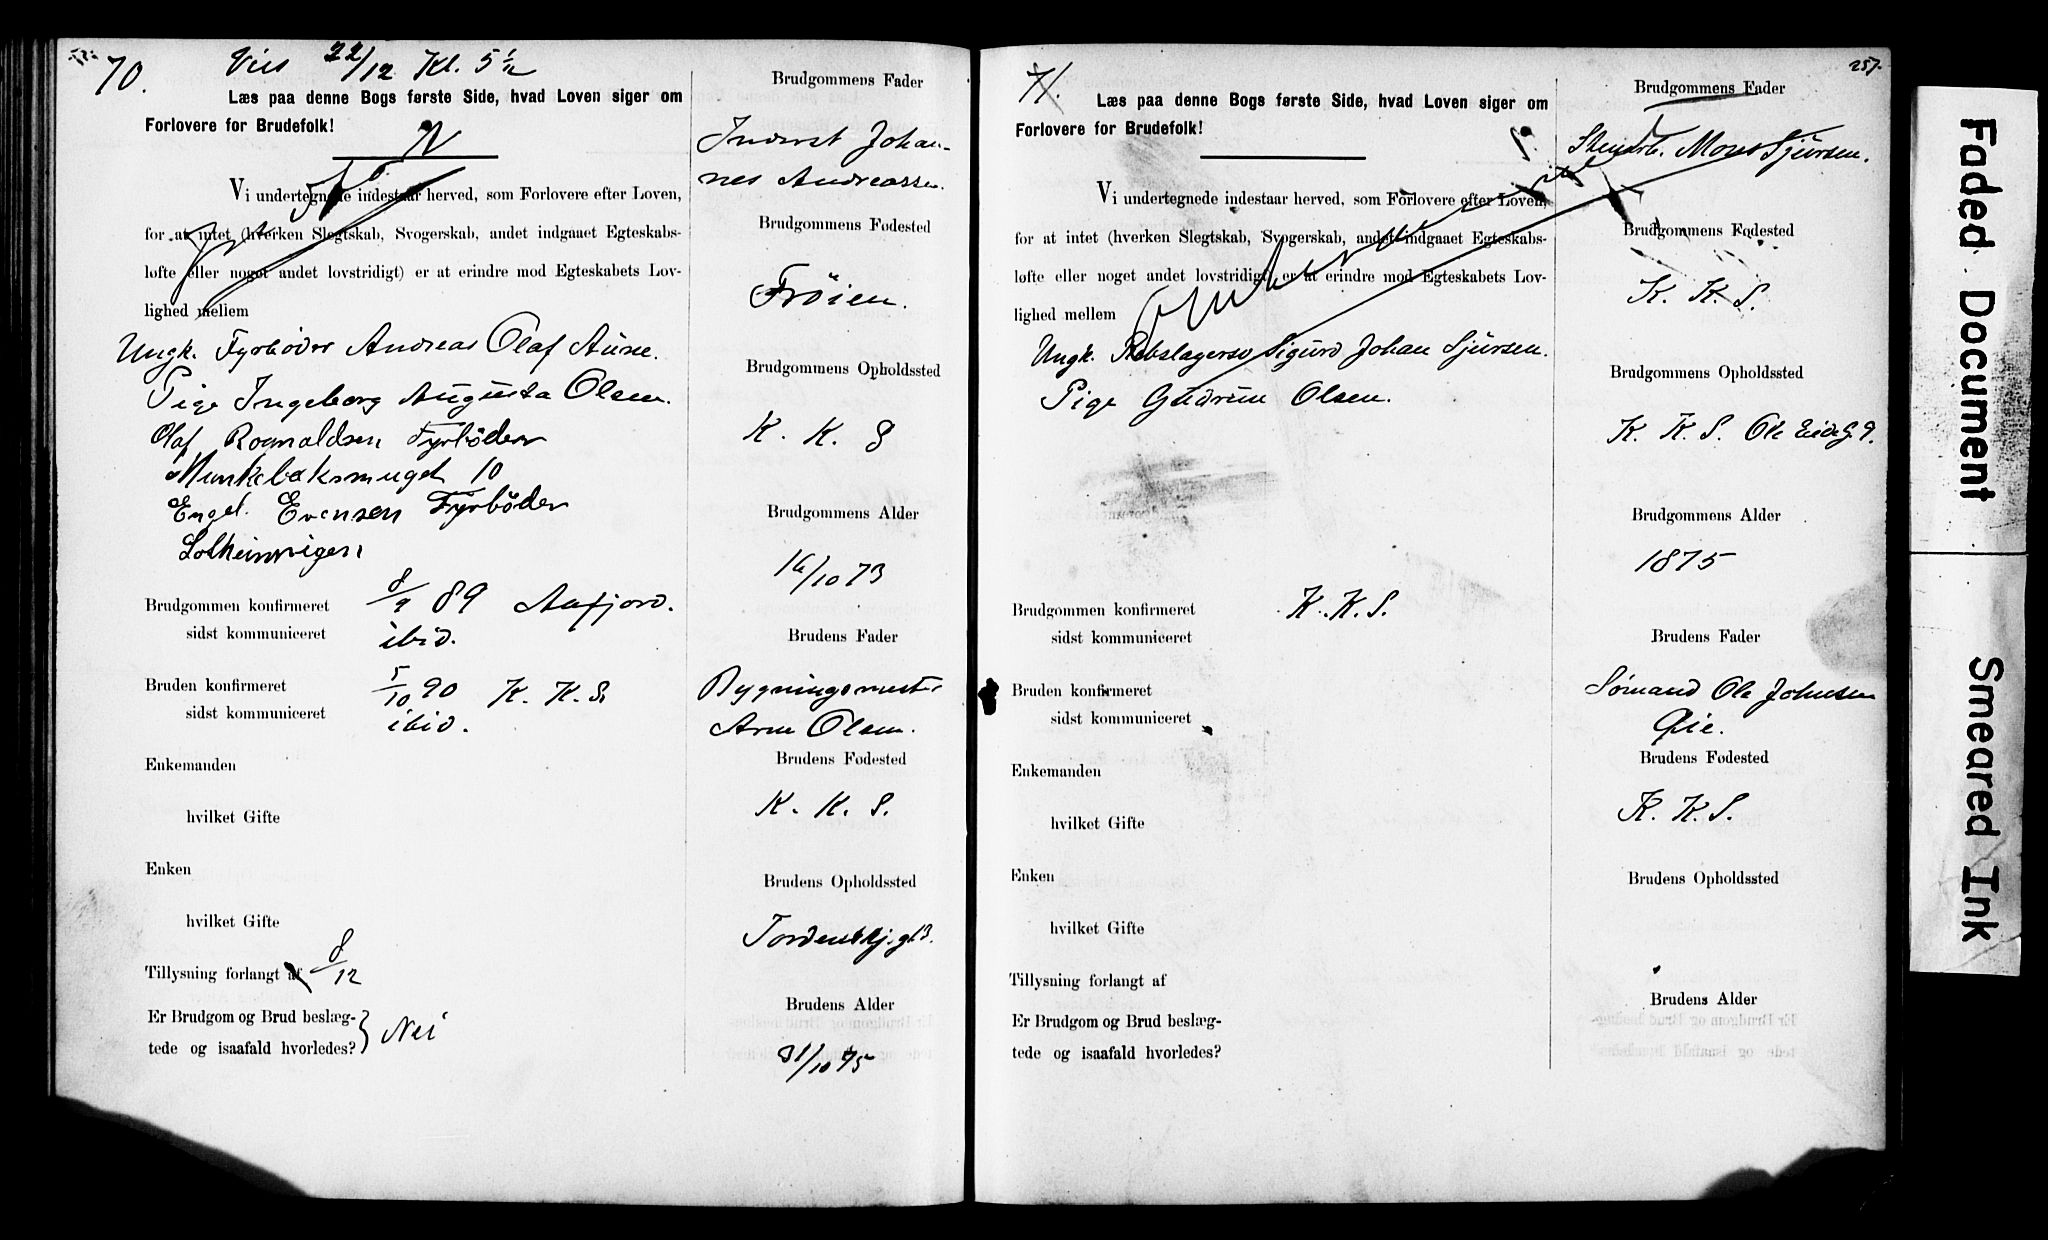 70.
Vies 22/12 Kl. 5 1/2
Læs paa denne Bogs første Side, hvad Loven siger om
Forlovere for Brudefolk!
Vi undertegnede indestaar herved, som Forlovere efter Loven,
for at intet (hverken Slegtskab, Svogerskab, andet indgaaet Egteskabs-
løfte eller noget andet lovstridigt) er at erindre mod Egteskabets Lov-
lighed mellem
Ungk. Fyrbøder Andreas Olaf Aune.
Pige Ingeborg Augusta Olsen.
Olaf Rognaldsen Fyrbøder
Munkebæksmuget 10
Engel. Evensen Fyrbøder
Brudgommen konfirmeret 8/9 89 Aafjord.
sidst kommuniceret ibid.
Bruden konfirmeret 5/10 90 K. K. S.
sidst kommuniceret ibid.
Enkemanden
hvilket Gifte
Enken
hvilket Gifte
Tillysning forlangt af 8/12
Er Brudgom og Brud beslæg-
tede og isaafald hvorledes? Nei
Brudgommens Fader
Inderst Johan-
nes Andreassen.
Brudgommens Fødested
Frøien.
Brudgommens Opholdssted
K. K. S
Brudgommens Alder
16/10 73
Brudens Fader
Bygningsmester
Arne Olsen.
Brudens Fødested
K. K. S.
Brudens Opholdssted
Tordenskj.gt 3.
Brudens Alder
31/10 75
71.
257.
Læs paa denne Bogs første Side, hvad Loven siger om
Forlovere for Brudefolk!
Vi undertegnede indestaar herved, som Forlovere efter Loven,
for at intet (hverken Slegtskab, Svogerskab, andet indgaaet Egteskabs-
løfte eller noget andet lovstridigt) er at erindre mod Egteskabets Lov-
lighed mellem
Ungk. Rebslagersv Sigurd Johan Sjursen.
Pige Gudrun Olsen.
Brudgommen konfirmeret K. K. S.
sidst kommuniceret
Bruden konfirmeret
sidst kommuniceret
Enkemanden
hvilket Gifte
Enken
hvilket Gifte
Tillysning forlangt af
Er Brudgom og Brud beslæg-
tede og isaafald hvorledes?
Brudgommens Fader
Stenarb. Mons Sjursen.
Brudgommens Fødested
K. K. S.
Brudgommens Opholdssted
K. K. S. Ole
Brudgommens Alder
1875
Brudens Fader
Sømand Ole Johnsen
Øie.
Brudens Fødested
K. K. S.
Brudens Opholdssted
Brudens Alder
Faded Document
Smeared Ink